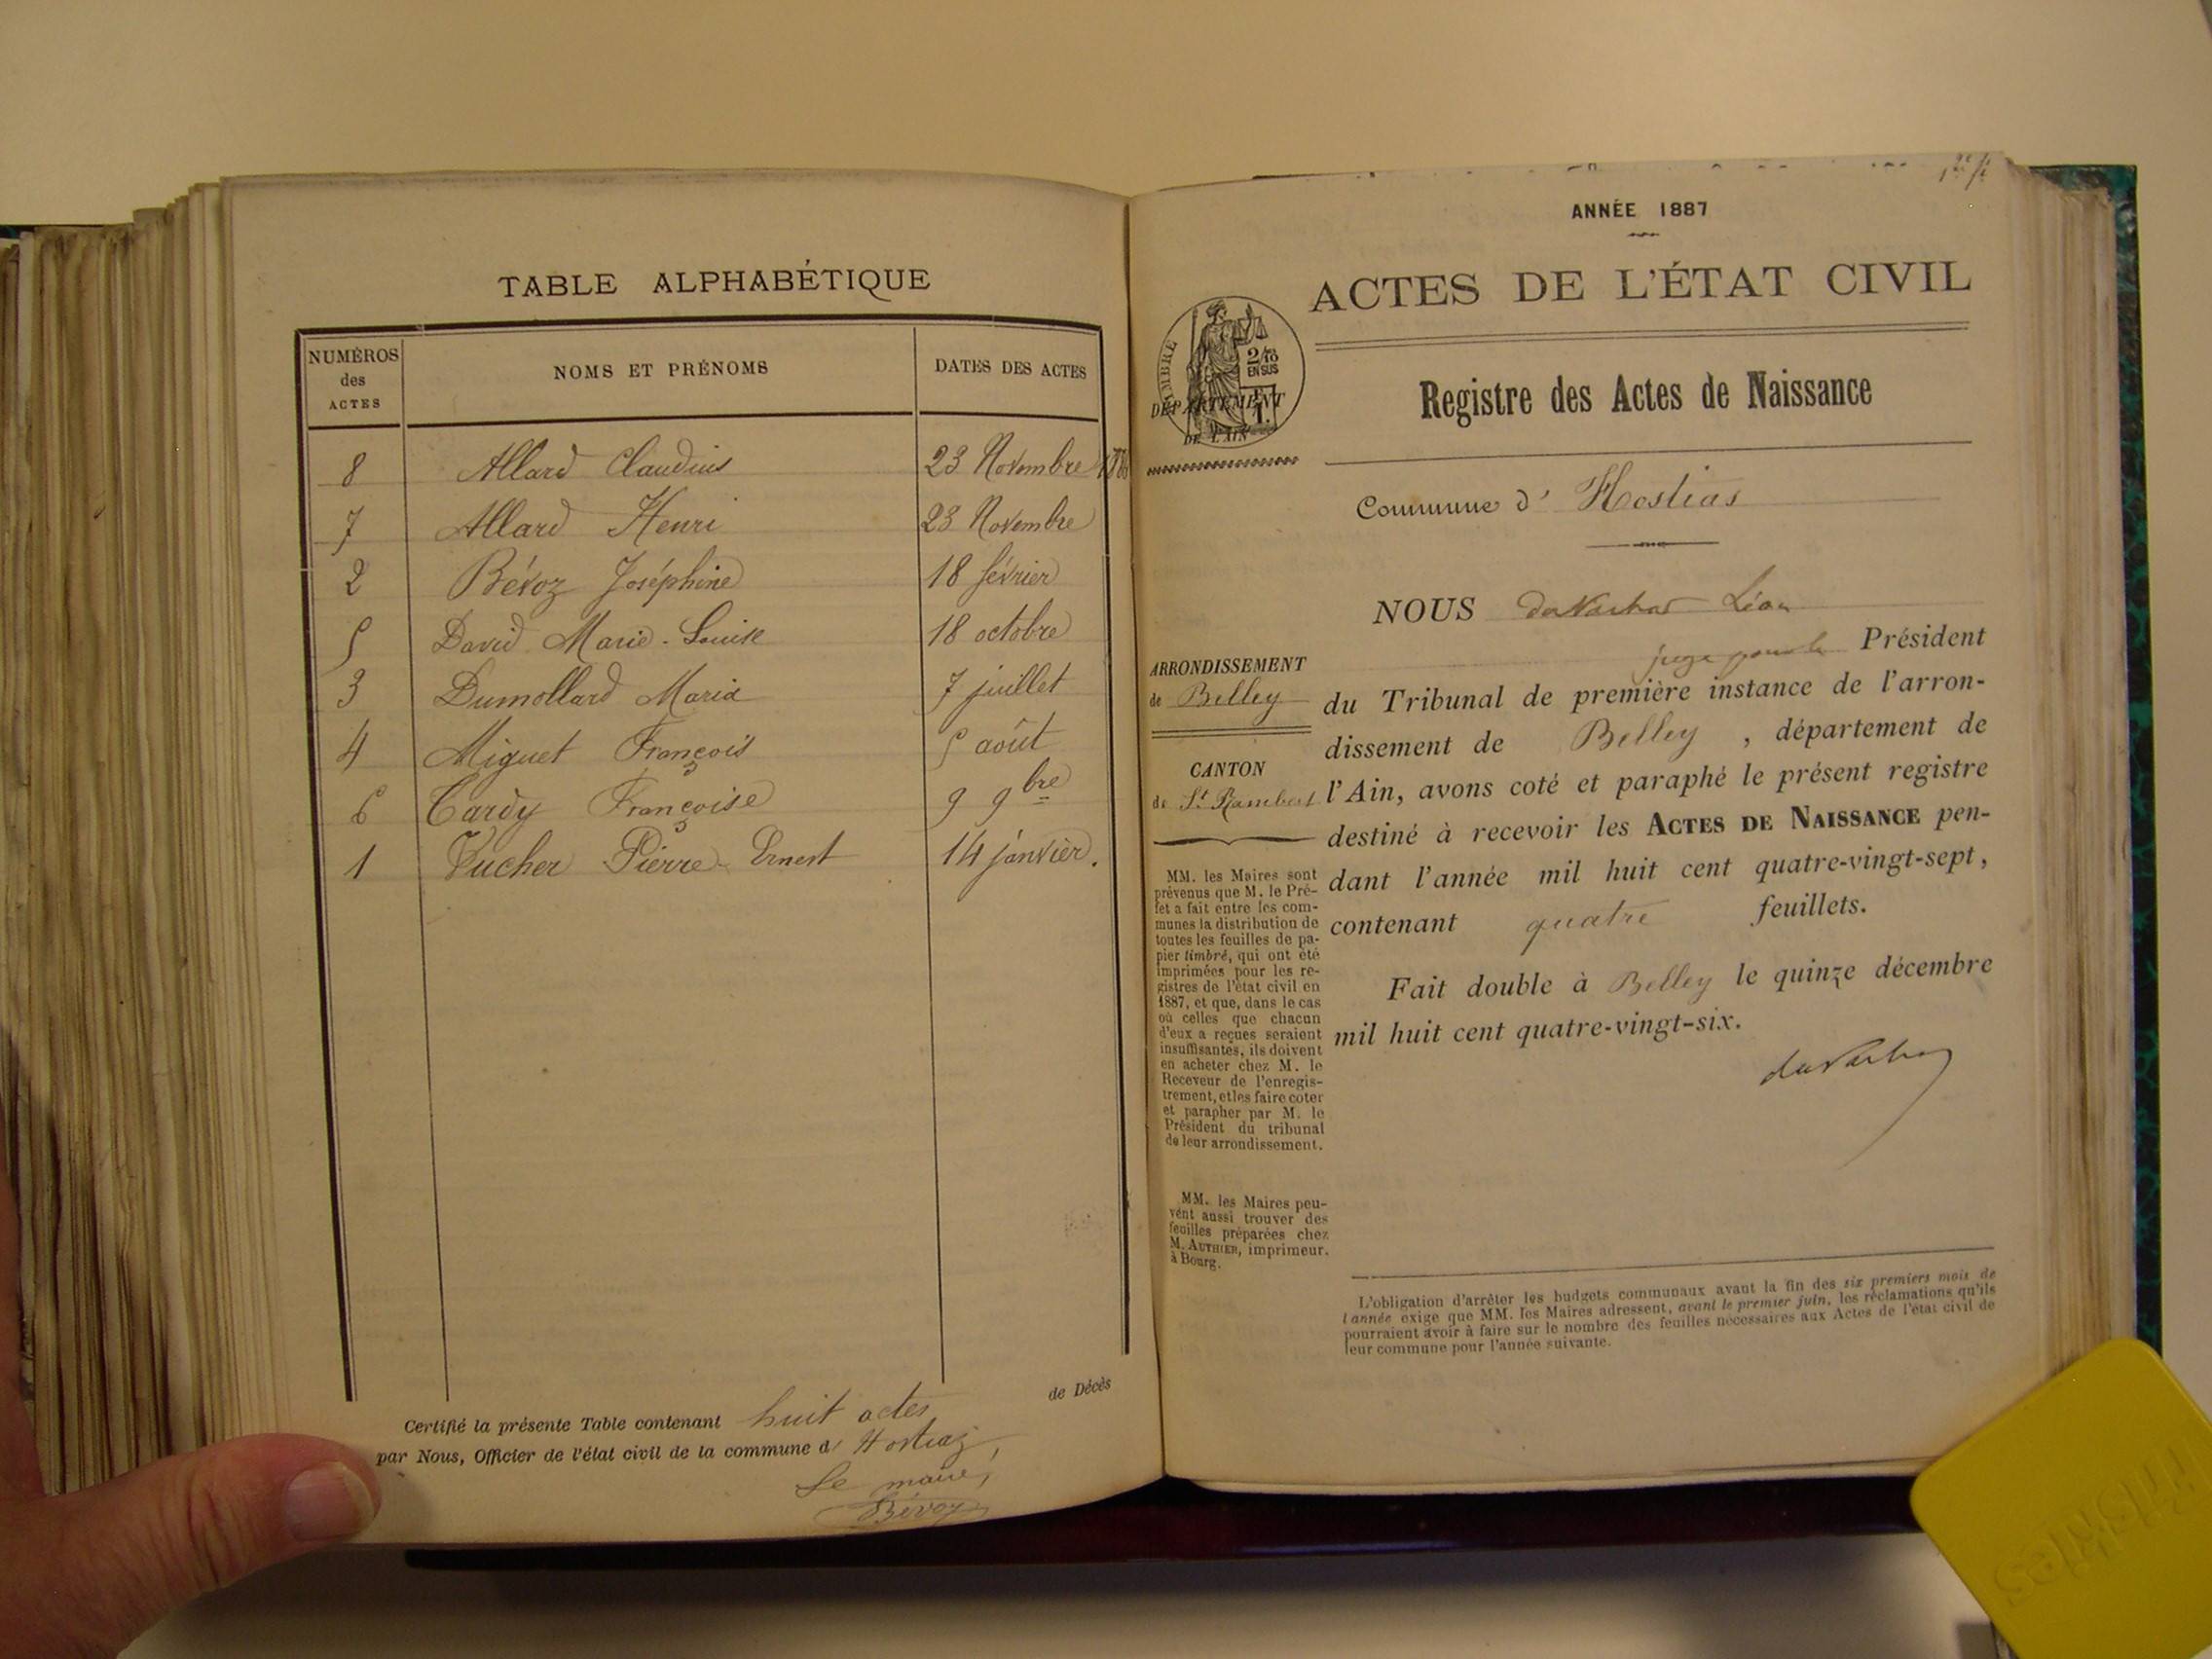 TABLE ALPHABÉTIQUE
NUMÉROS des ACTES
NOMS ET PRÉNOMS
DATES DES ACTES
8 Allard Claudius 23 Novembre
7 Allard Henri 23 Novembre
2 Bévoz Joséphine 18 février
5 David Marie-Louise 18 octobre
3 Dumollard Maria 7 juillet
4 Miguet François 5 août
6 Tardy Françoise 9 9bre
1 Vucher Pierre Ernest 14 janvier.
de Décès
Certifié la présente Table contenant huit actes
par Nous, Officier de l'état civil de la commune d' Hostiaz,
Le maire,
Bévoz
ANNÉE 1887
ACTES DE L'ÉTAT CIVIL
TIMBRE
2/10
EN SUS
DÉPARTEMENT
DE L'AIN
Registre des Actes de Naissance
Commune d' Hostias
NOUS Léon
juge pour le Président
du Tribunal de première instance de l'arron-
dissement de Belley, département de
l'Ain, avons coté et paraphé le présent registre
destiné à recevoir les ACTES DE NAISSANCE pen-
dant l'année mil huit cent quatre-vingt-sept,
contenant quatre feuillets.
Fait double à Belley le quinze décembre
mil huit cent quatre-vingt-six.
ARRONDISSEMENT
de Belley
CANTON
de St Rambert
MM. les Maires sont
prévenus que M. le Pré-
fet a fait entre les com-
munes la distribution de
toutes les feuilles de pa-
pier timbré, qui ont été
imprimées pour les re-
gistres de l'état civil en
1887, et que, dans le cas
où celles que chacun
d'eux a reçues seraient
insuffisantes, ils doivent
en acheter chez M. le
Receveur de l'enregis-
trement, et les faire coter
et parapher par M. le
Président du tribunal
de leur arrondissement.
MM. les Maires peu-
vent aussi trouver des
feuilles préparées chez
M. AUTHIER, imprimeur,
à Bourg.
L'obligation d'arrêter les budgets communaux avant la fin des six premiers mois de
l'année exige que MM. les Maires adressent, avant le premier juin, les réclamations qu'ils
pourraient avoir à faire sur le nombre des feuilles nécessaires aux Actes de l'état civil de
leur commune pour l'année suivante.